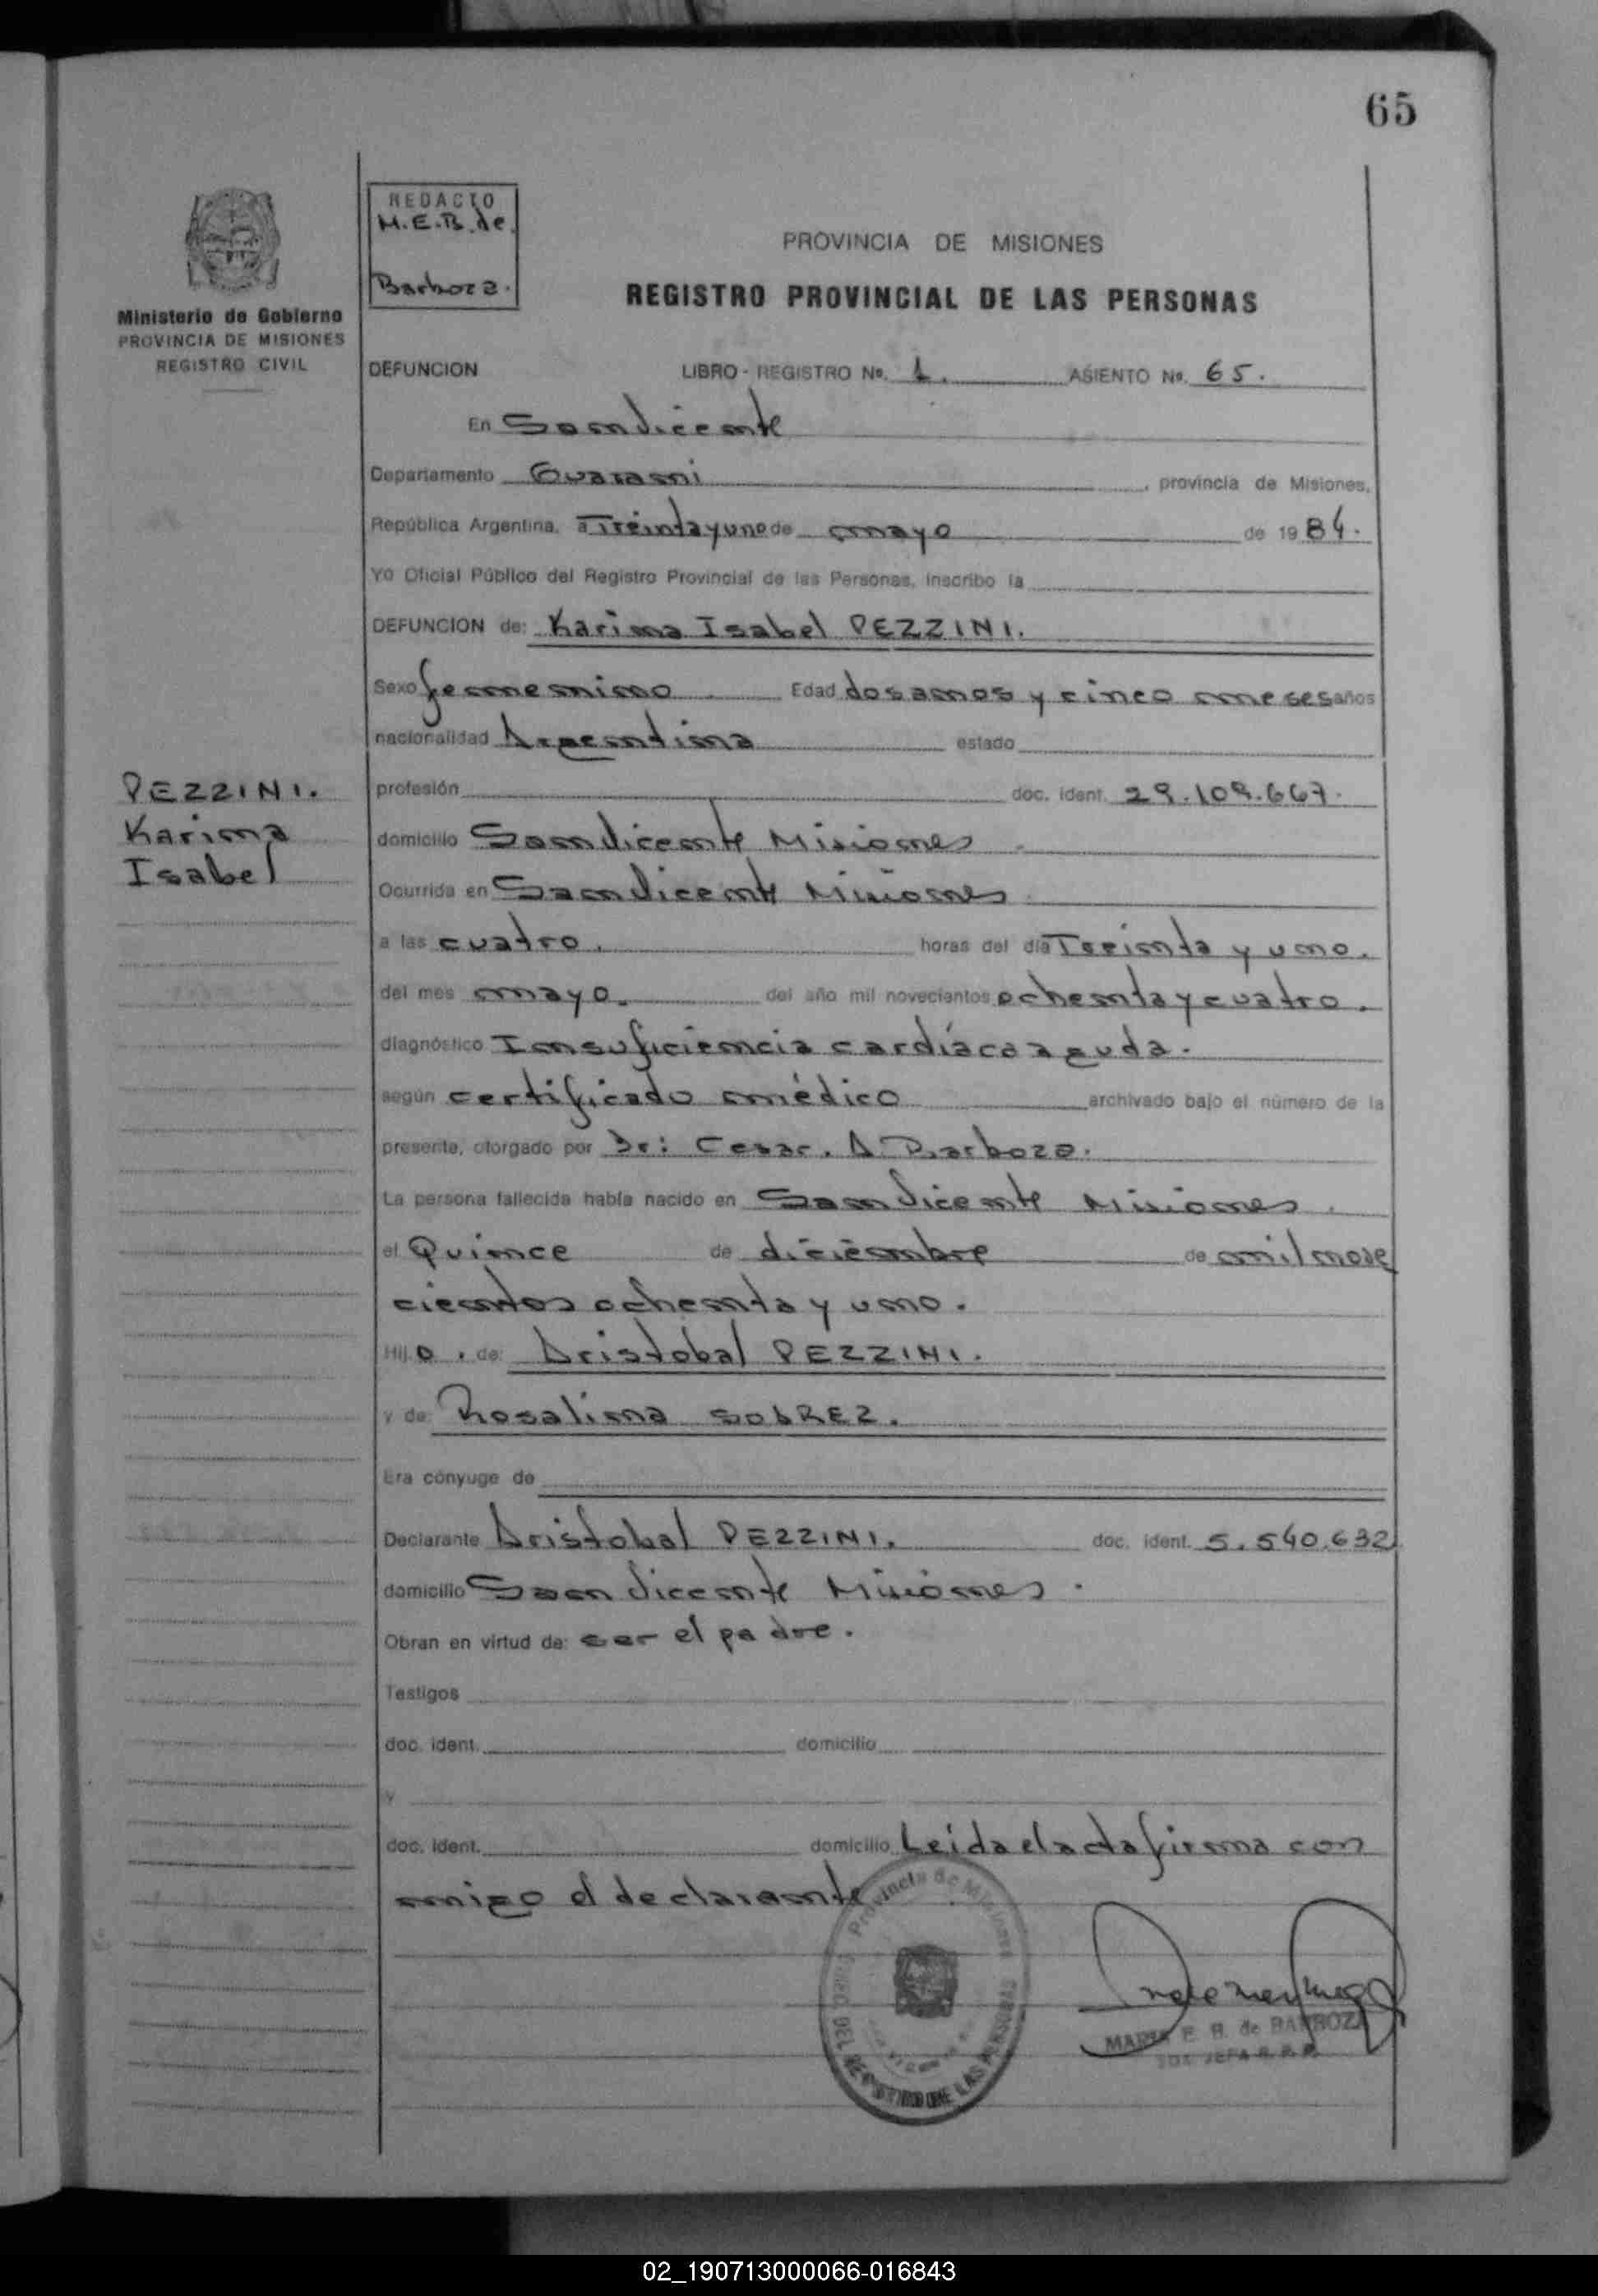 65
REDACTO
M.E.B. de
Barboza.
PROVINCIA DE MISIONES
REGISTRO PROVINCIAL DE LAS PERSONAS
Ministerio de Gobierno
PROVINCIA DE MISIONES
REGISTRO CIVIL
DEFUNCION LIBRO - REGISTRO Nº. 1. ASIENTO Nº. 65.
En San Vicente
Departamento Guarani, provincia de Misiones,
República Argentina, a Treinta y uno de mayo de 1984.
Yo Oficial Público del Registro Provincial de las Personas, inscribo la
DEFUNCION de: Karina Isabel PEZZINI.
Sexo femenino Edad dos anos y cinco meses años
nacionalidad Argentina estado
PEZZINI.
Karina
Isabel
profesión doc. ident. 29.109.667.
domicilio San Vicente Misiones
Ocurrida en San Vicente Misiones
a las cuatro. horas del día Treinta y uno.
del mes mayo. del año mil novecientos ochenta y cuatro.
diagnóstico Insuficiencia cardíaca aguda.
según certificado médico archivado bajo el número de la
presente, otorgado por Dr: Cesar. A Barboza.
La persona fallecida había nacido en San Vicente Misiones.
el Quince de diciembre de mil nove
cientos ochenta y uno.
Hij a. de: Aristobal PEZZINI.
y de: Rosalina SOBREZ.
Era cónyuge de
Declarante Aristobal PEZZINI. doc. ident. 5.540.632
domicilio San Vicente Misiones.
Obran en virtud de: ser el padre.
Testigos
doc. ident. domicilio
y
doc. ident. domicilio Leida el acta firma con
migo el declarante
Provincia de Misiones
DEL REGISTRO DE LAS PERSONAS
MARIA E. B. de BARBOZA
JEFA R. P. P.
02_190713000066-016843